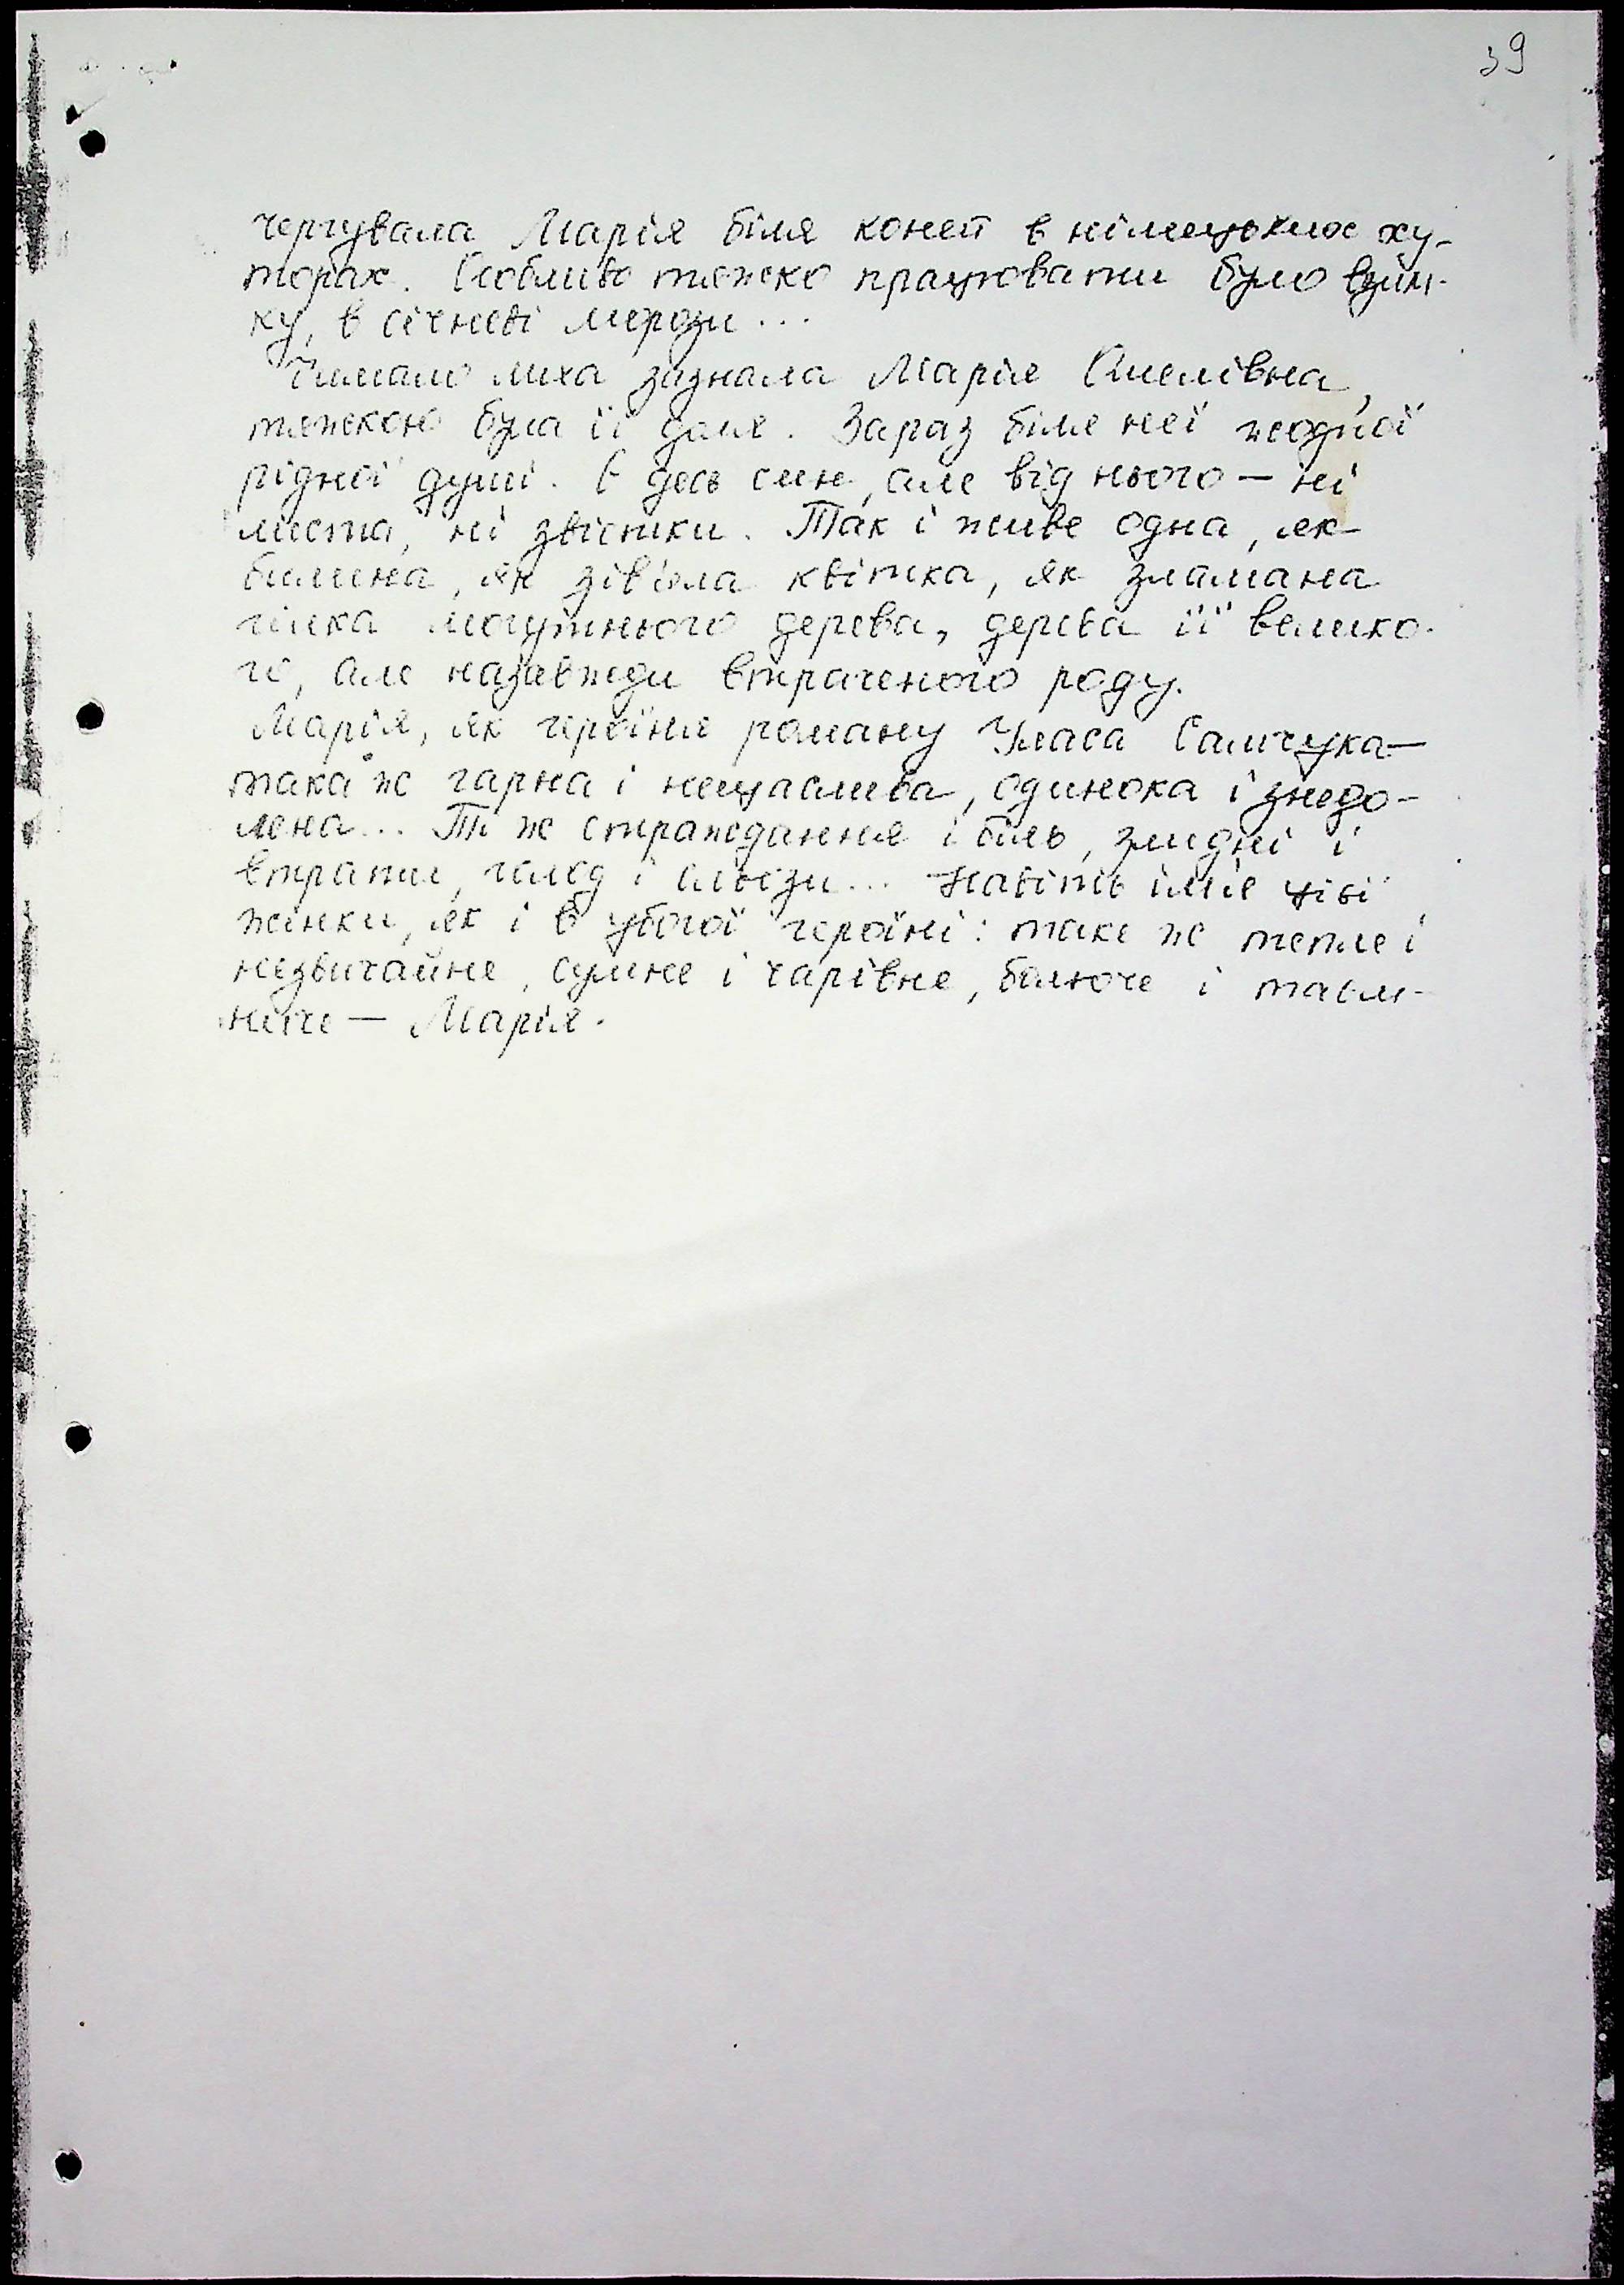 39
чергувала Марія біля коней в німецьких ху-
торах. Особливо тяжко працювати було взим-
ку, в січневі морози...
Чимало лиха зазнала Марія Омелівна,
тяжкою була її доля. Зараз біля неї жодної
рідної душі. Є десь син, але від нього — ні
листа, ні звістки. Так і живе одна, як
билина, як зів'яла квітка, як зламана
гілка могутнього дерева, дерева її велико-
го, але назавжди втраченого роду.
Марія, як героїня роману Уласа Самчука —
така ж гарна і нещаслива, одинока і знедо-
лена... Ті ж страждання і біль, злидні і
втрати, голод і сльози... Навіть ім'я цієї
жінки, як і в убогої героїні: таке ж тепле і
незвичайне, сумне і чарівне, болюче і таєм-
ниче — Марія.